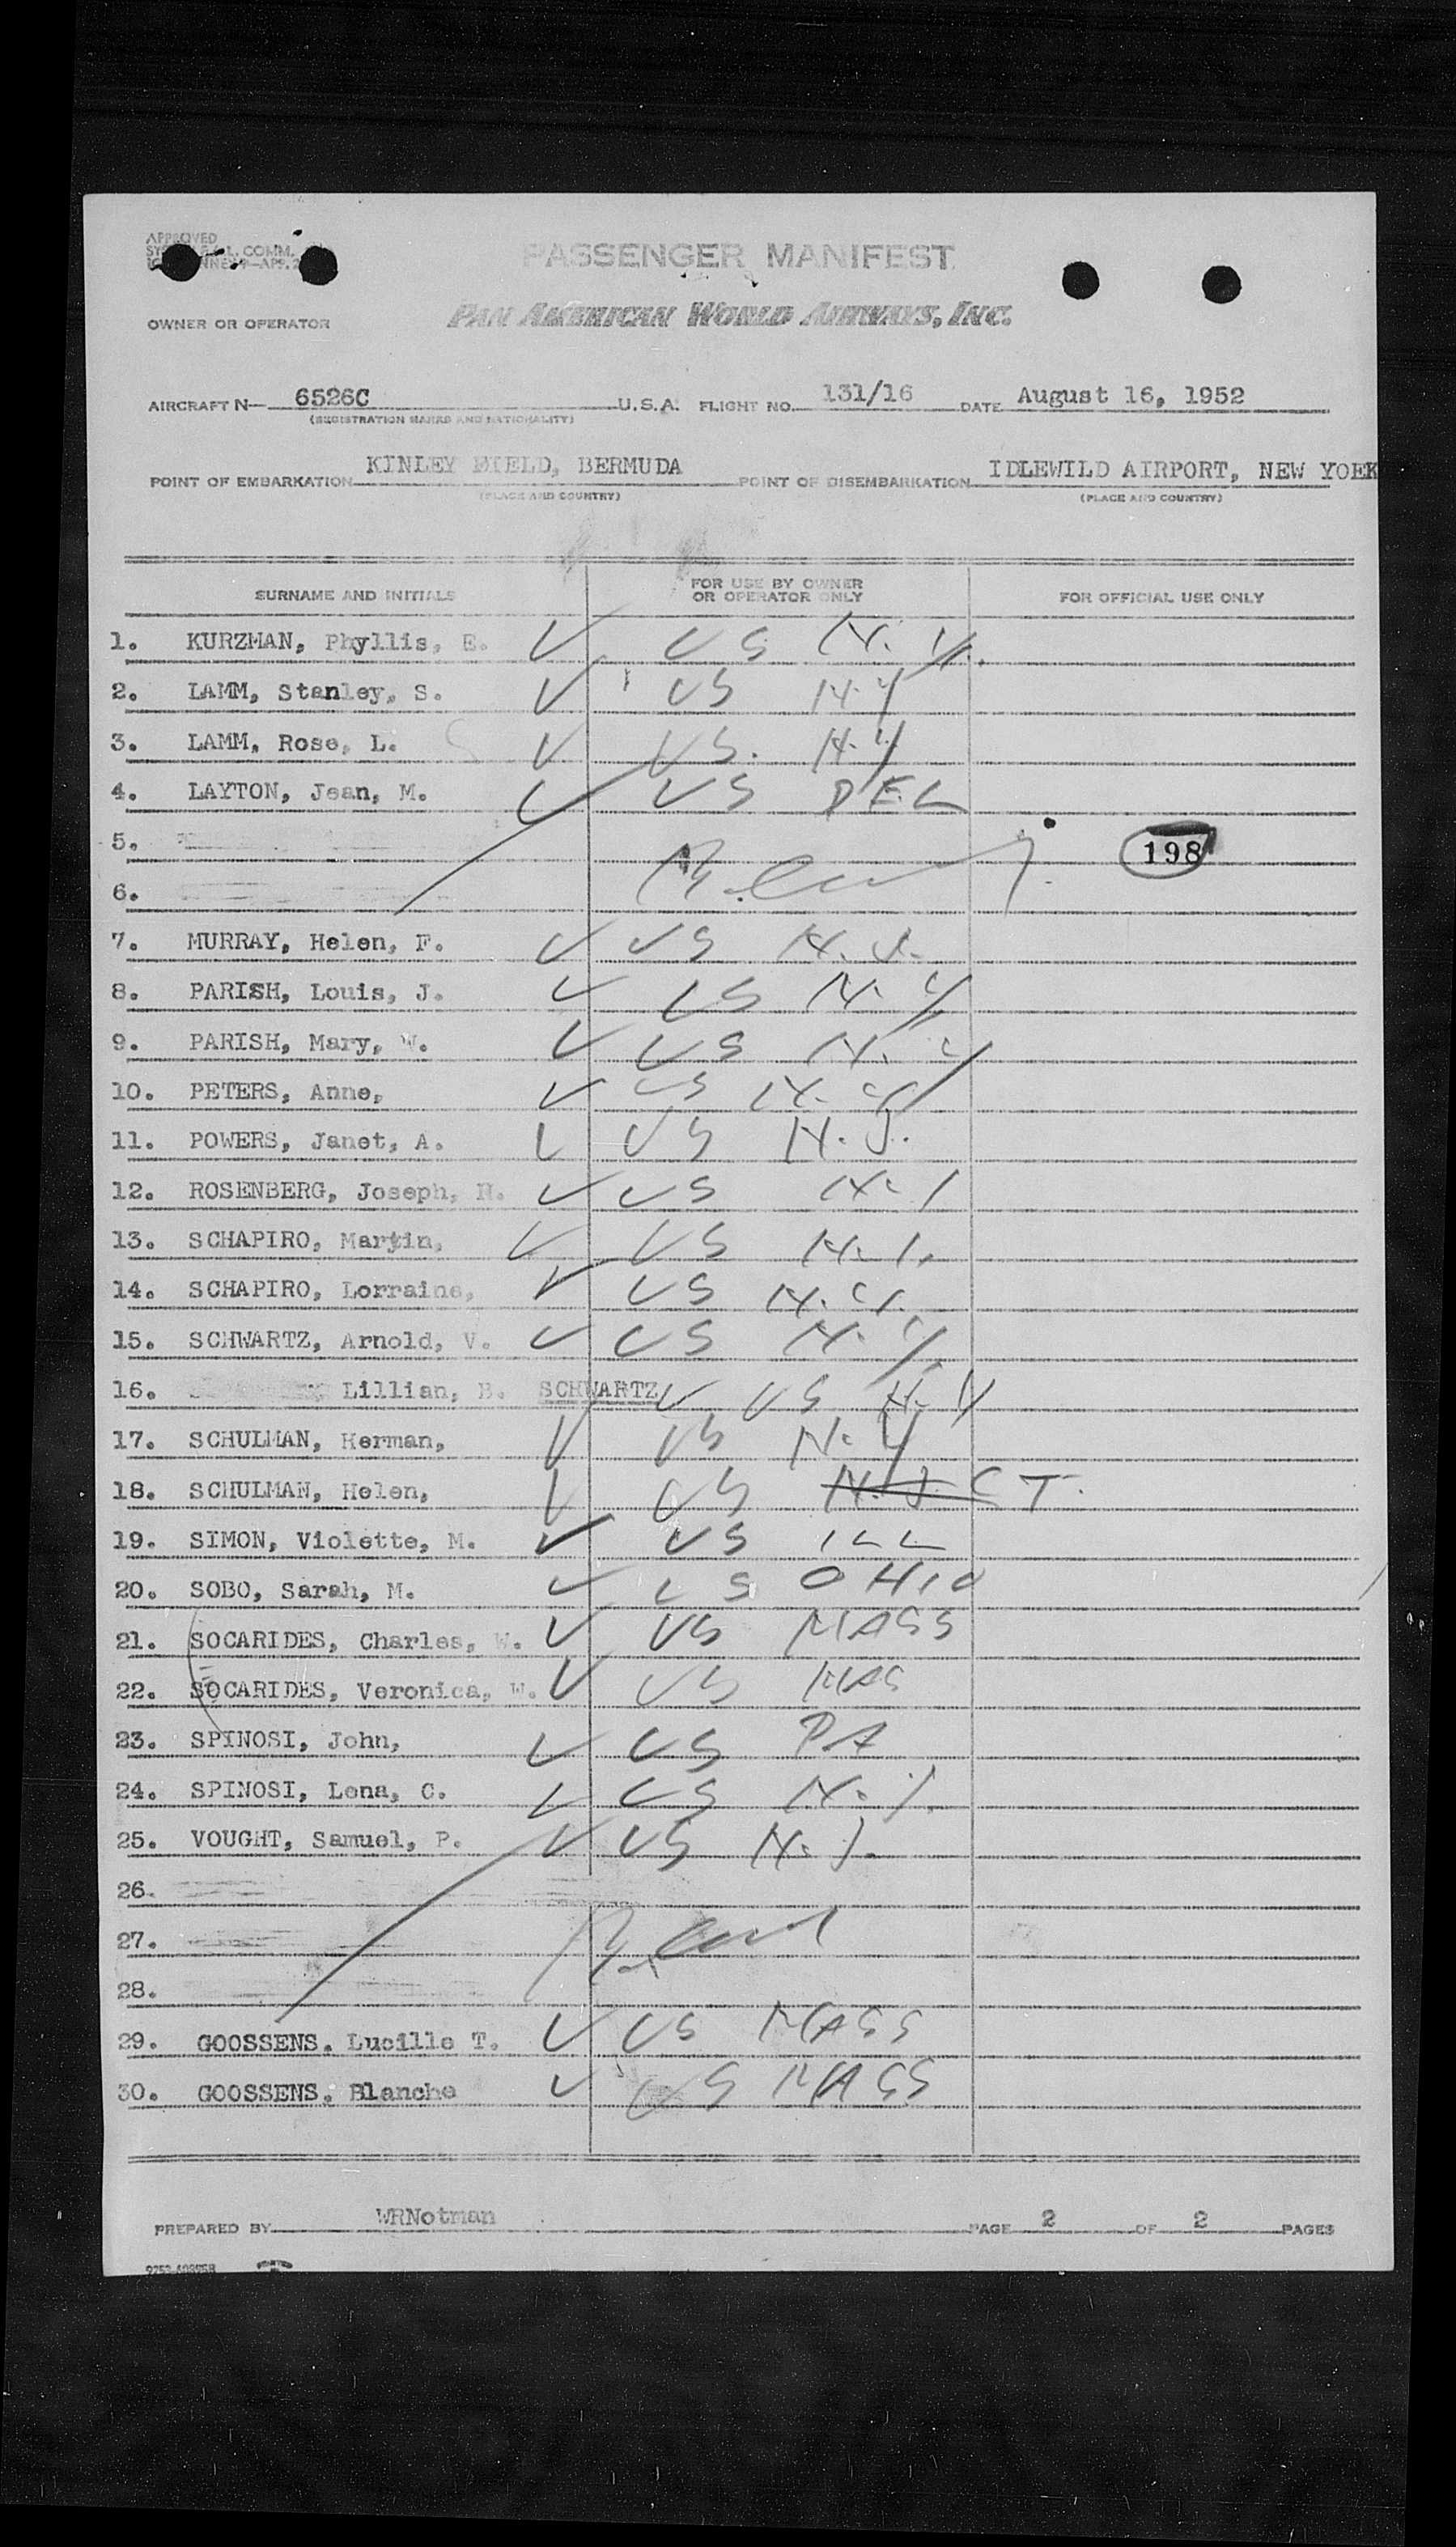 APPROVED
PASSENGER MANIFEST
OWNER OR OPERATOR PAN AMERICAN WORLD AIRWAYS, INC.
AIRCRAFT N— 6526C U.S.A. FLIGHT NO. 131/16 DATE August 16, 1952
(REGISTRATION MARKS AND NATIONALITY)
POINT OF EMBARKATION KINLEY FIELD, BERMUDA POINT OF DISEMBARKATION IDLEWILD AIRPORT, NEW YORK
(PLACE AND COUNTRY) (PLACE AND COUNTRY)
SURNAME AND INITIALS FOR USE BY OWNER OR OPERATOR ONLY FOR OFFICIAL USE ONLY
1. KURZMAN, Phyllis, E. ✓ US N.Y.
2. LAMM, Stanley, S. ✓ US N.Y
3. LAMM, Rose, L. ✓ US. N.Y
4. LAYTON, Jean, M. ✓ US DEL
5. 198
6.
7. MURRAY, Helen, F. ✓ US N.J.
8. PARISH, Louis, J. ✓ US N.Y
9. PARISH, Mary, W. ✓ US N.Y
10. PETERS, Anne, ✓ US N.Y
11. POWERS, Janet, A. ✓ US N.J.
12. ROSENBERG, Joseph, ✓ US
13. SCHAPIRO, Martin, ✓ US
14. SCHAPIRO, Lorraine, ✓ US N.Y.
15. SCHWARTZ, Arnold, V. ✓ US N.Y.
16. Lillian, B. SCHWARTZ ✓ US N.Y
17. SCHULMAN, Herman, ✓ US N.Y
18. SCHULMAN, Helen, ✓ US N.J CT.
19. SIMON, Violette, M. ✓ US ILL
20. SOBO, Sarah, M. ✓ US OHIO
21. SOCARIDES, Charles, W. ✓ US MASS
22. SOCARIDES, Veronica, W. ✓ US MAS
23. SPINOSI, John, ✓ US PA
24. SPINOSI, Lena, C. ✓ US N.Y.
25. VOUGHT, Samuel, P. ✓ US N.J.
26.
27.
28.
29. GOOSSENS, Lucille T. ✓ US MASS
30. GOOSSENS, Blanche ✓ US MASS
PREPARED BY WRNotman PAGE 2 OF 2 PAGES